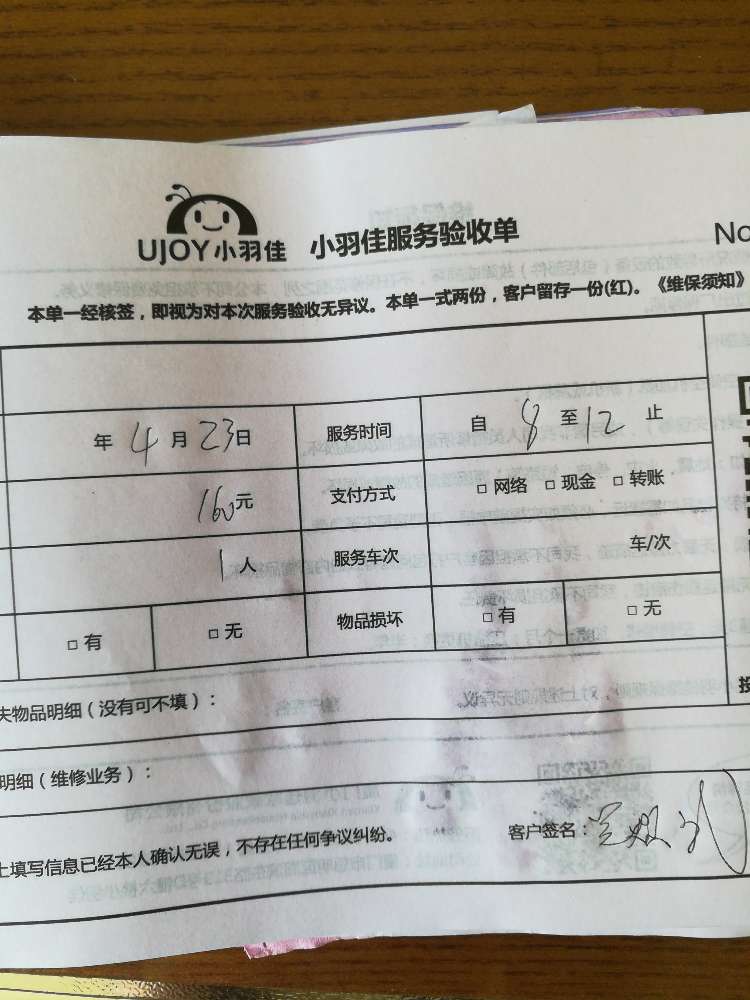 UJOY小羽佳 小羽佳服务验收单 No
本单一经核签，即视为对本次服务验收无异议。本单一式两份，客户留存一份(红)。《维保须知》
年 4 月 23 日 服务时间 自 8 至 12 止
160 元 支付方式 □ 网络 □ 现金 □ 转账
1 人 服务车次 车/次
□ 有 □ 无 物品损坏 □ 有 □ 无
失物品明细（没有可不填）：
明细（维修业务）：
客户签名：
上填写信息已经本人确认无误，不存在任何争议纠纷。